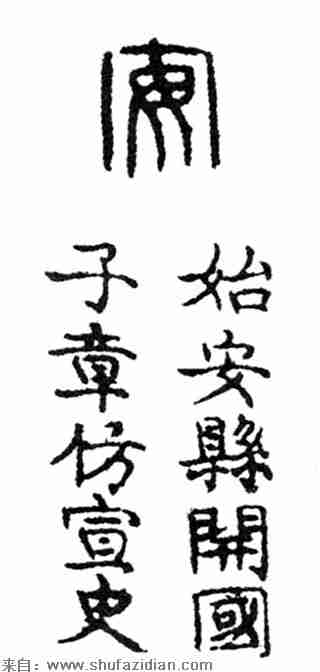 安
始安縣開國
子章仿宣史
来自：www.shufazidian.com